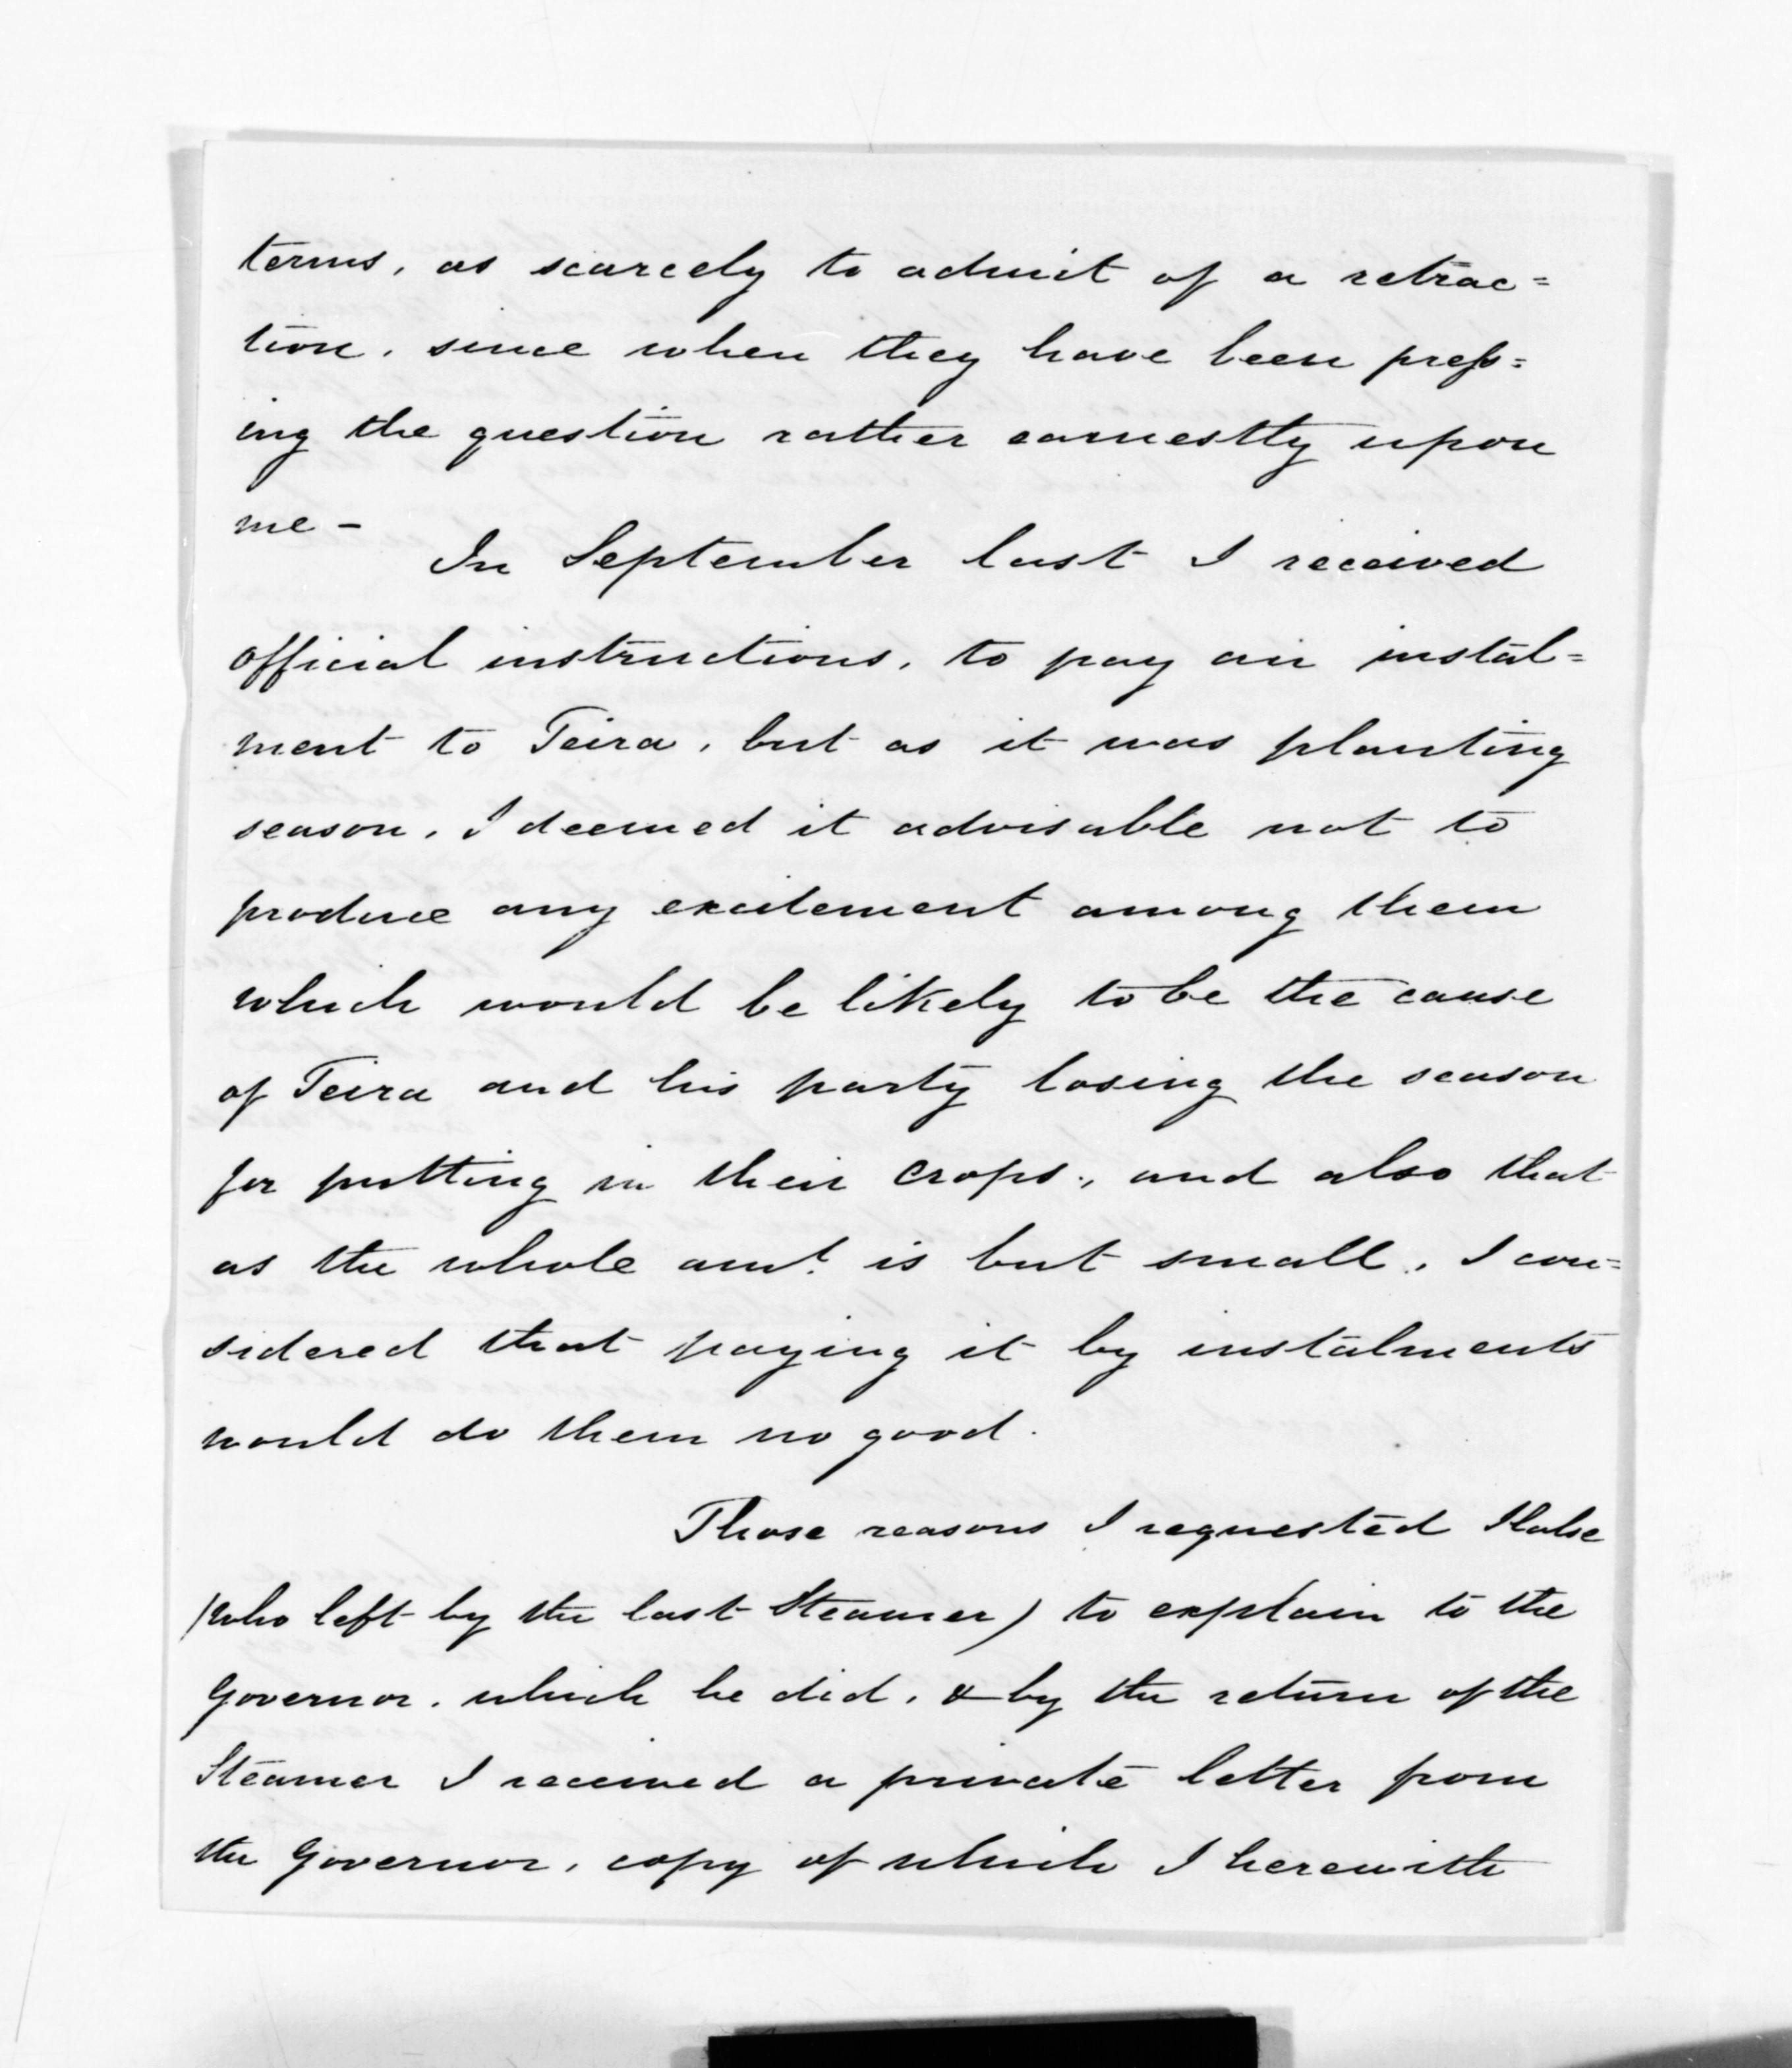 terms, as scarcely to admit of a retrac=
tion, since when they have been press=
ing the question rather earnestly upon
me -
In September last I received
official instructions, to pay an instal=
ment to Teira, but as it was planting
season, I deemed it advisable not to
produce any excitement among them
which would be likely to be the cause
of Teira and his party losing the season
for putting in their crops, and also that
as the whole amt. is but small, I con=
sidered that paying it by instalments
would do them no good.
Those reasons I requested Halse
(who left by the last Steamer) to explain to the
Governor, which he did, & by the return of the
Steamer I received a private letter from
the Governor, copy of which I herewith